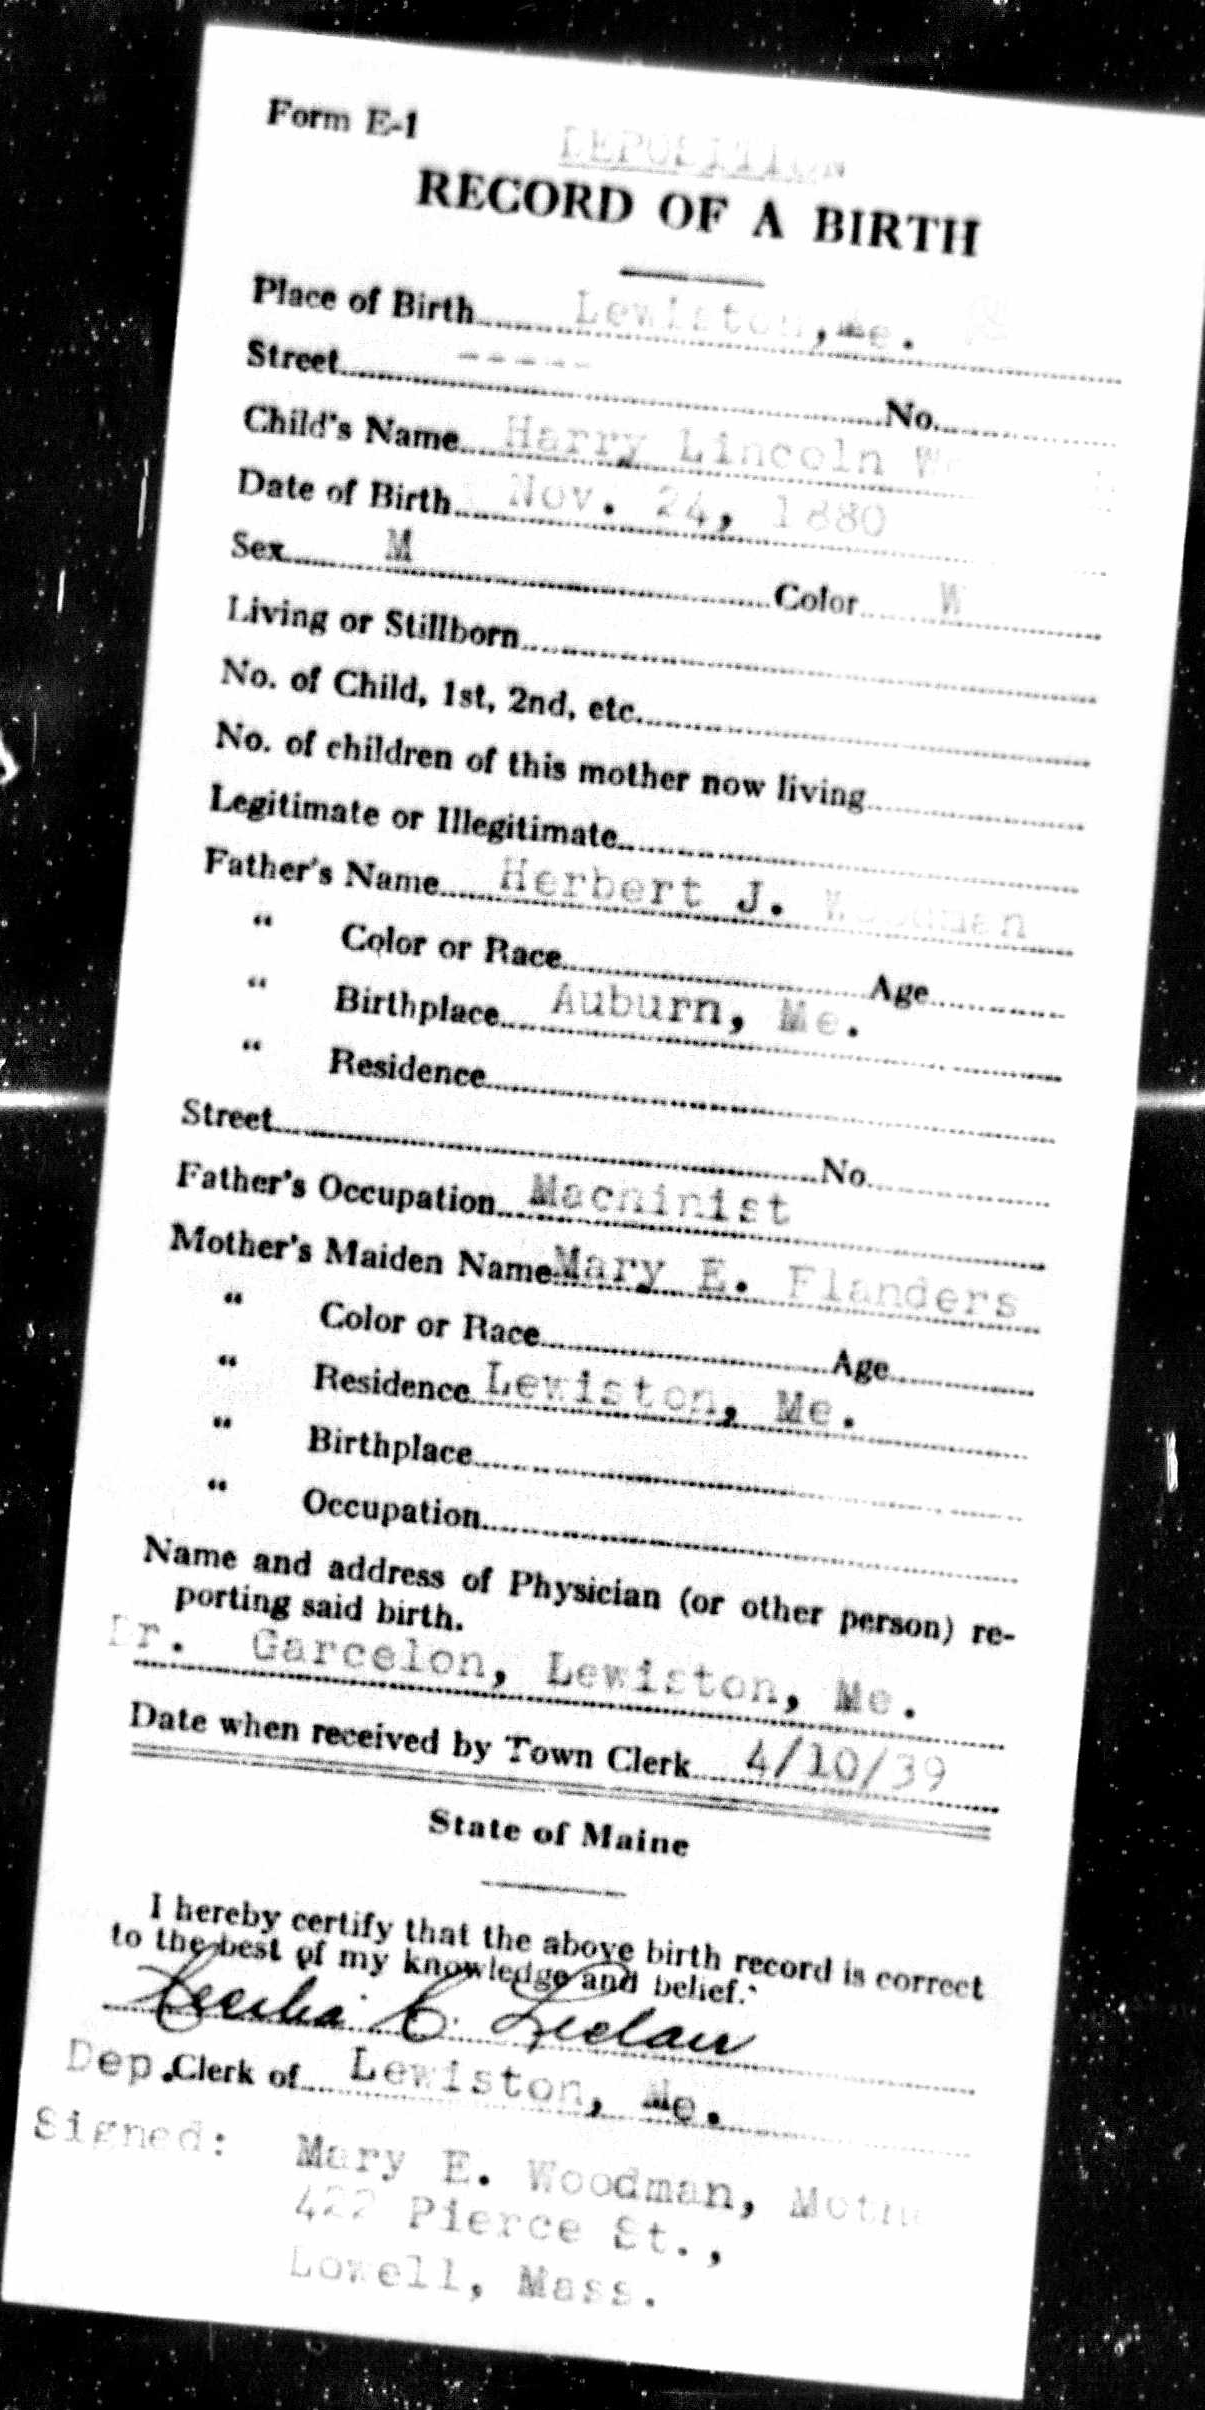 Form E-1
DEPOSITION
RECORD OF A BIRTH
Place of Birth Lewiston, Me.
Street ----- No.
Child's Name Harry Lincoln
Date of Birth Nov. 24, 1880
Sex M Color W
Living or Stillborn
No. of Child, 1st, 2nd, etc.
No. of children of this mother now living
Legitimate or Illegitimate
Father's Name Herbert J. Woodman
" Color or Race Age
" Birthplace Auburn, Me.
" Residence
Street No.
Father's Occupation Machinist
Mother's Maiden Name Mary E. Flanders
" Color or Race Age
" Residence Lewiston, Me.
" Birthplace
" Occupation
Name and address of Physician (or other person) re-
porting said birth.
Dr. Garcelon, Lewiston, Me.
Date when received by Town Clerk 4/10/39
State of Maine
I hereby certify that the above birth record is correct
to the best of my knowledge and belief.
Cecilia C. Leclair
Dep. Clerk of Lewiston, Me.
Signed: Mary E. Woodman,
422 Pierce St.,
Lowell, Mass.